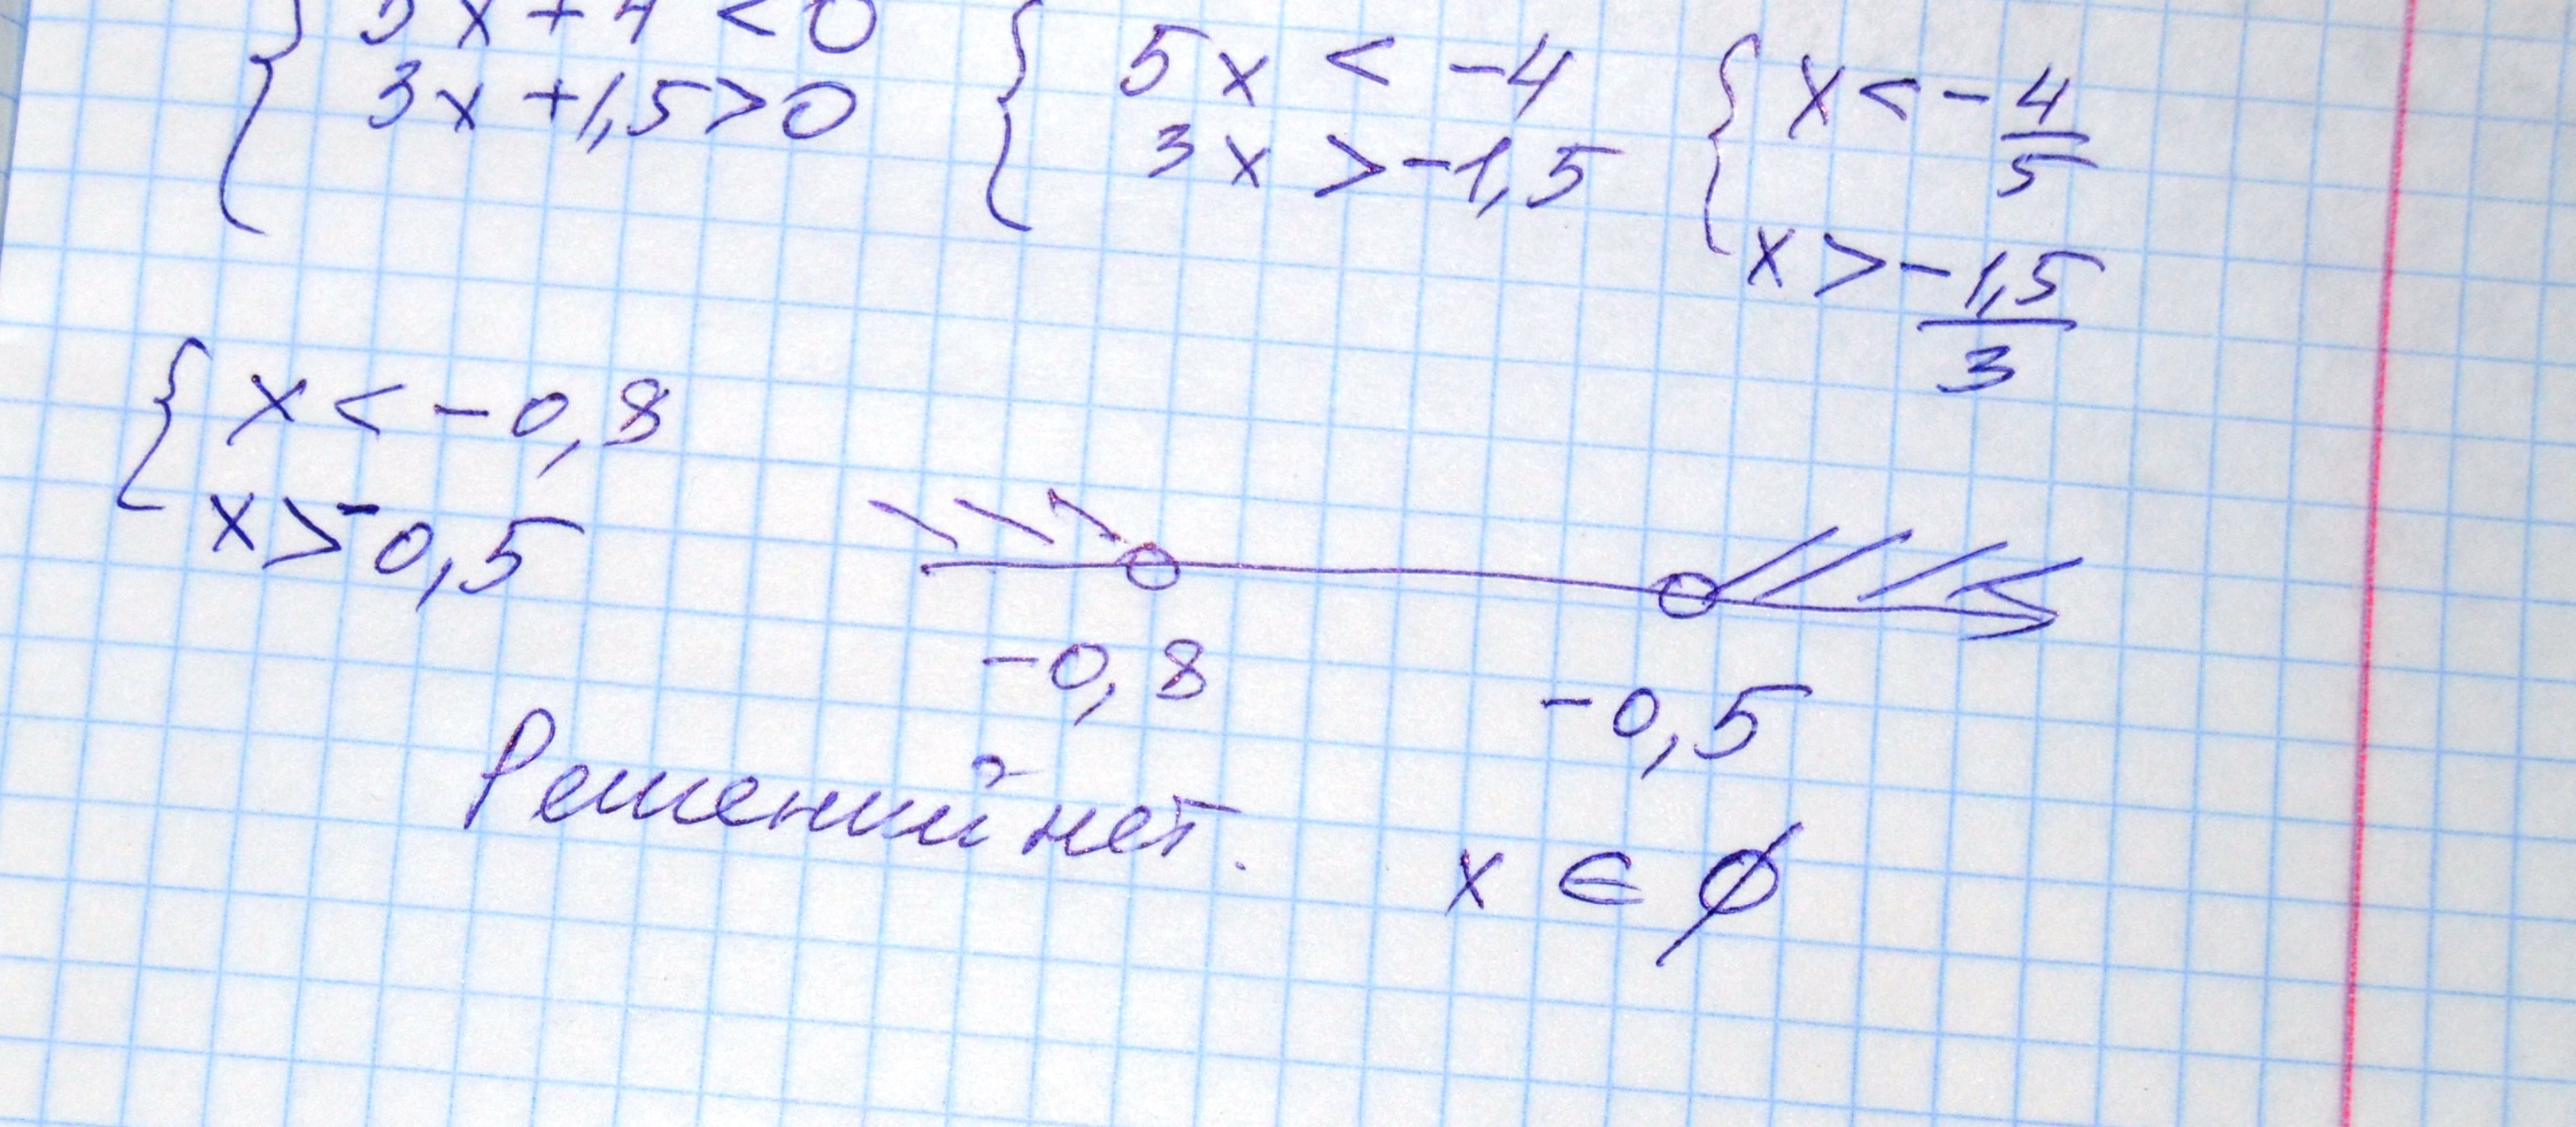 { 5x + 4 < 0
3x + 1,5 > 0
{ 5x < -4
3x > -1,5
{ x < - 4/5
x > - 1,5/3
{ x < -0,8
x > -0,5
-0,8
-0,5
Решений нет.
x ∈ ∅